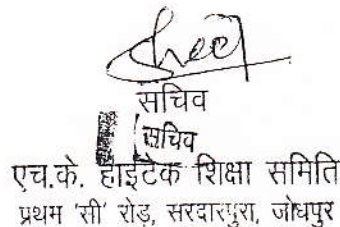 सचिव
सचिव
एच.के. हाईटेक शिक्षा समिति
प्रथम 'सी' रोड़, सरदारपुरा, जोधपुर